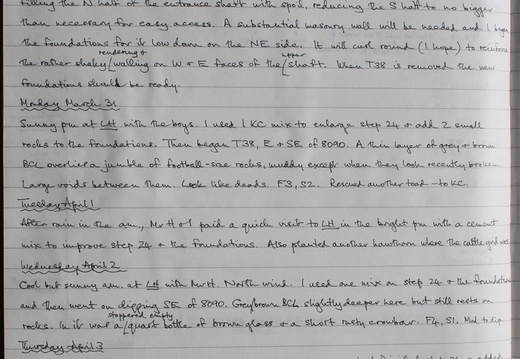 filling the N half of the entrance shaft with spoil, reducing the S half to no bigger
than necessary for easy access. A substantial masonry wall will be needed and I began
the foundations for it low down on the NE side. It will curl round (I hope) to reinforce
rendering + upper
the rather shaky walling on W + E faces of the shaft. When T38 is removed the new
foundations should be ready.
Monday March 31
Sunny pm at LH with the boys. I used 1 KC mix to enlarge step 24 + add 2 small
rocks to the foundations. Then began T38, E + SE of 8090. A thin layer of grey + brown
BCL overlies a jumble of football-size rocks, muddy except when they look recently broken.
Large voids between them. Look like deads. F3, S2. Rescued another toad - to KC.
Tuesday April 1
After rain in the am, Mr H + I paid a quick visit to LH in the bright pm with a cement
mix to improve step 24 + the foundations. Also planted another hawthorn where the cattle grid was.
Wednesday April 2
Cool but sunny am at LH with Mr H. North wind. I used one mix on step 24 + the foundations
and then went on digging SE of 8090. Grey brown BCL slightly deeper here but still rests on
stoppered empty
rocks. In it was a quart bottle of brown glass + a short rusty crowbar. F4, S1. Mud to dip
Thursday April 3